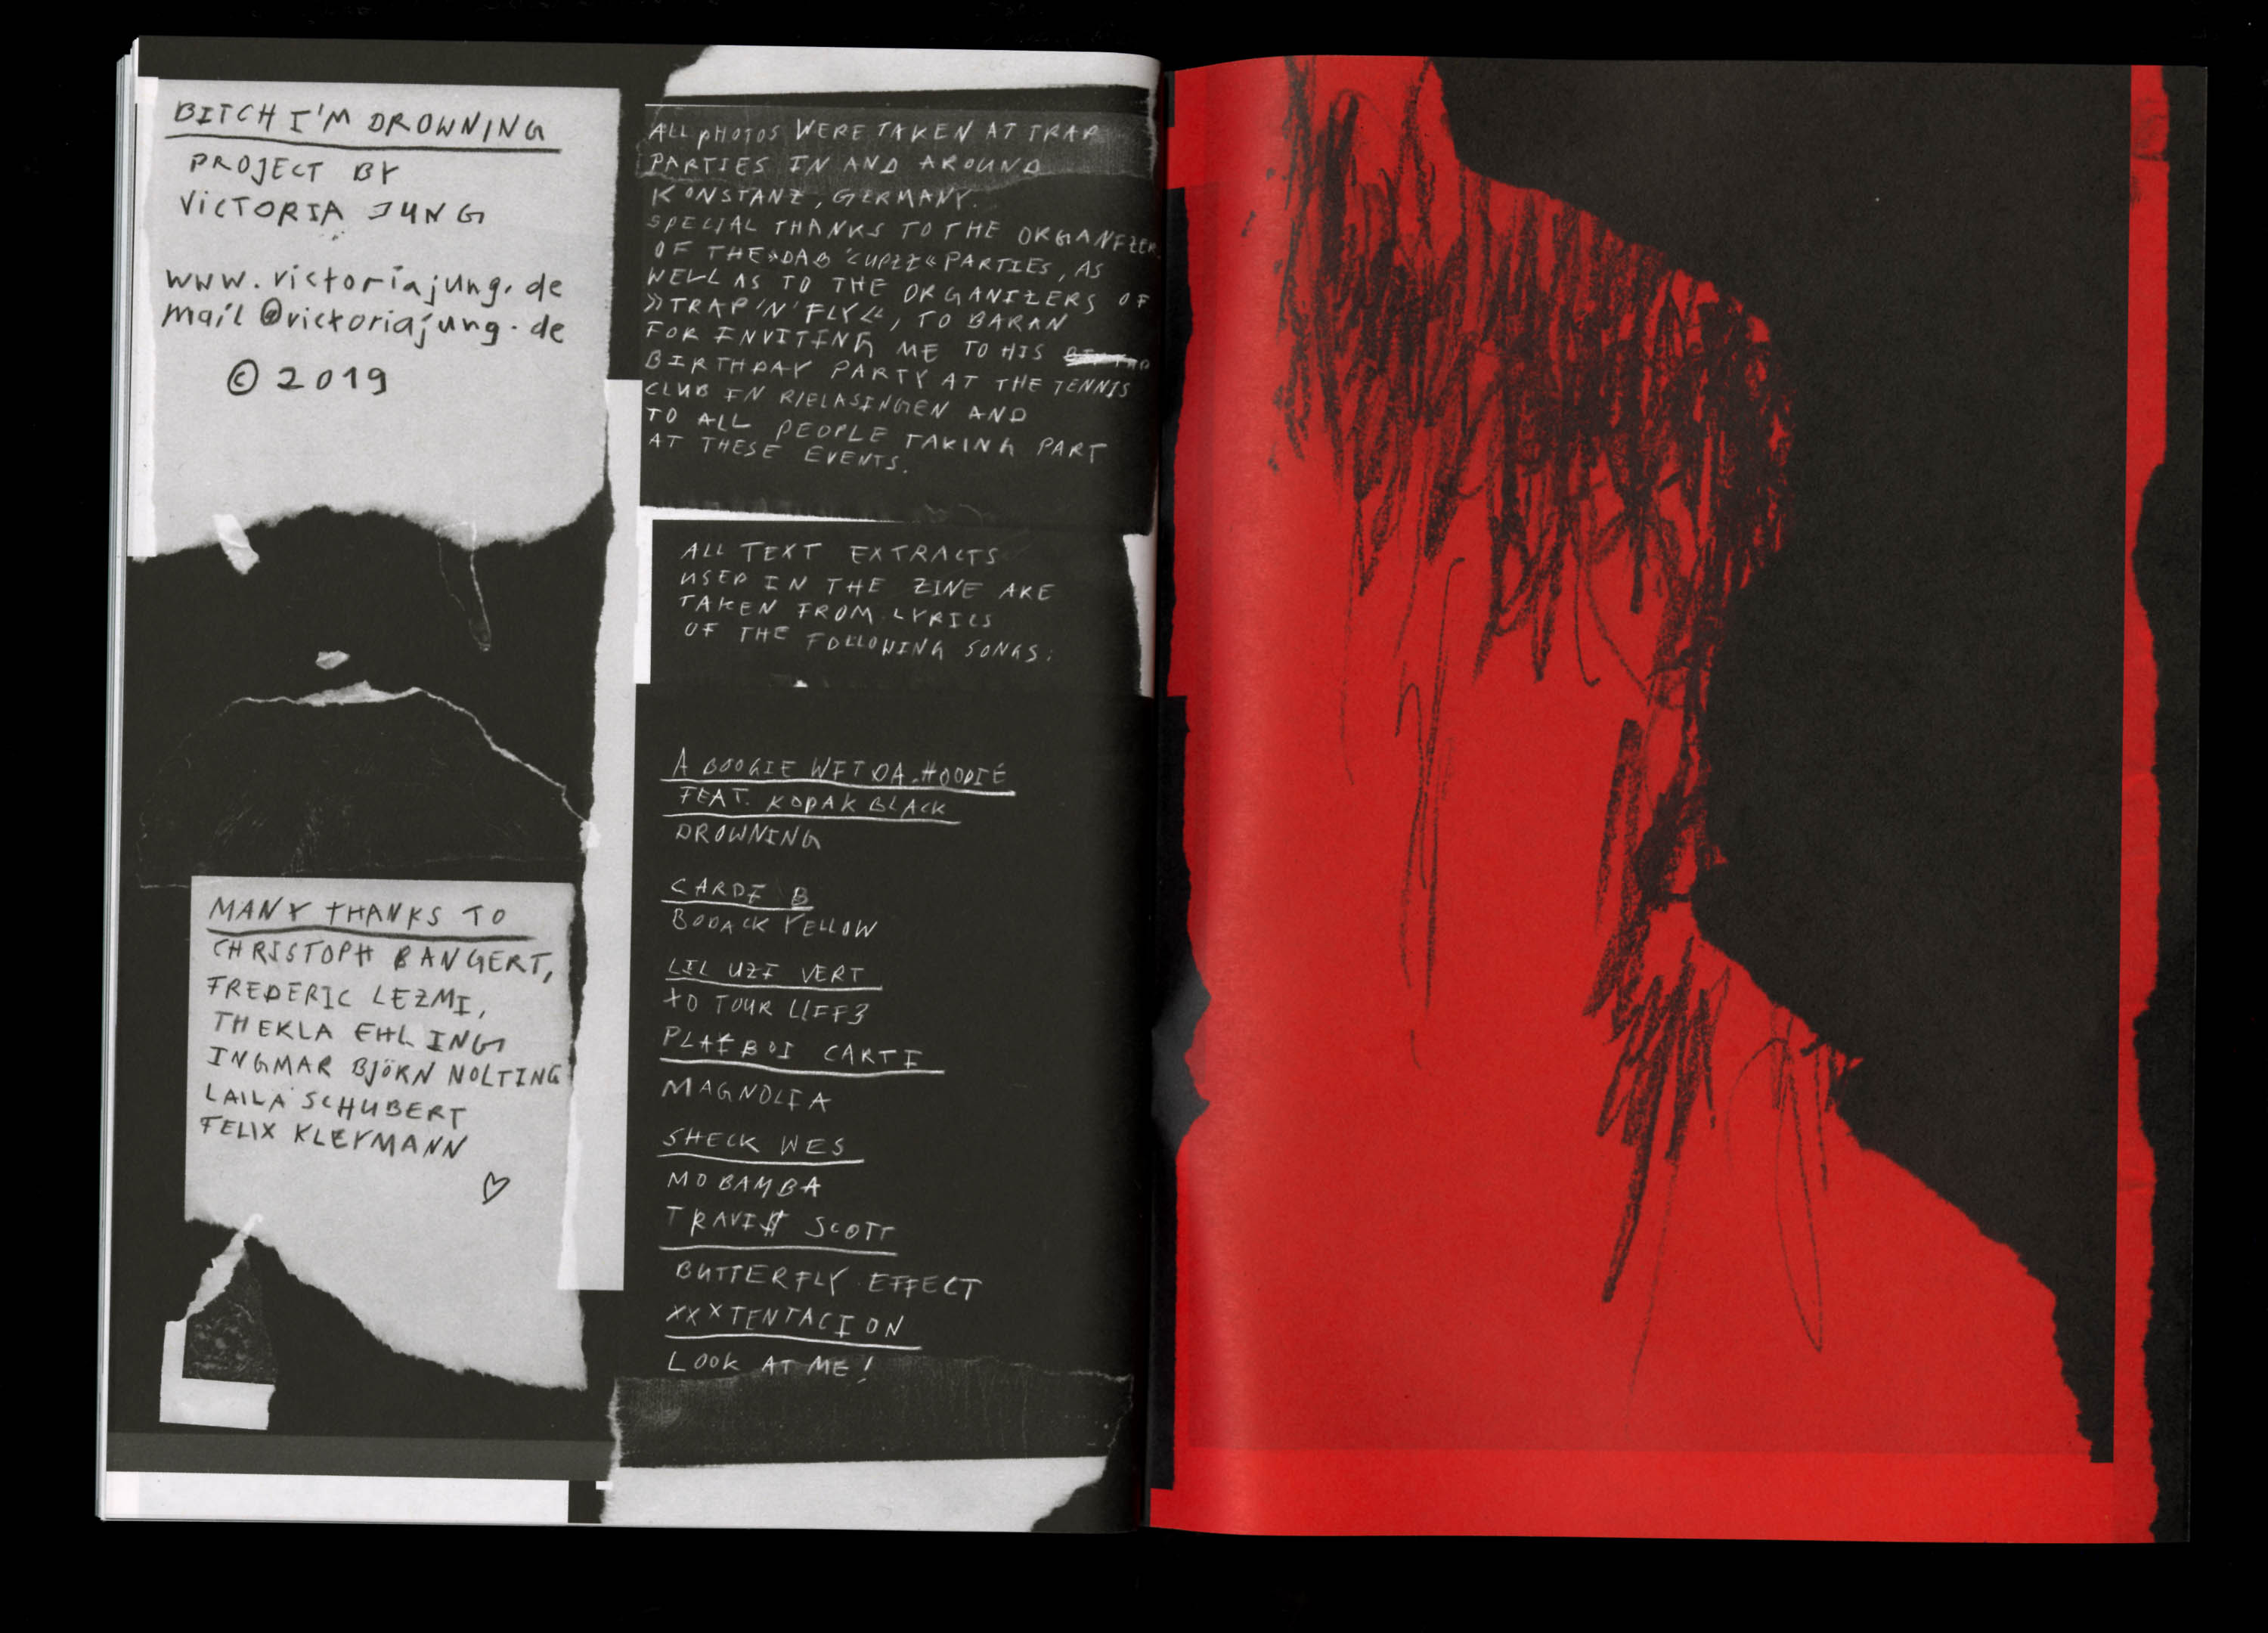 BITCH I'M DROWNING
PROJECT BY
VICTORIA JUNG
www.victoriajung.de
mail@victoriajung.de
© 2019
MANY THANKS TO
CHRISTOPH BANGERT,
FREDERIC LEZMI,
THEKLA EHLING
INGMAR BJÖRN NOLTING
LAILA SCHUBERT
FELIX KLEYMANN
ALL PHOTOS WERE TAKEN AT TRAP
PARTIES IN AND AROUND
KONSTANZ, GERMANY.
SPECIAL THANKS TO THE ORGANIZER
OF THE »DAB PARTIES, AS
WELL AS TO THE ORGANIZERS OF
»TRAP'N'FLY«, TO BARAN
FOR INVITING ME TO HIS
BIRTHDAY PARTY AT THE TENNIS
CLUB IN RIELASINGEN AND
TO ALL PEOPLE TAKING PART
AT THESE EVENTS.
ALL TEXT EXTRACTS
USED IN THE ZINE ARE
TAKEN FROM LYRICS
OF THE FOLLOWING SONGS:
A BOOGIE WIT DA HOODIE
FEAT. KODAK BLACK
DROWNING
CARDI B
BODACK YELLOW
LIL UZI VERT
XO TOUR LLIF3
PLAYBOI CARTI
MAGNOLIA
SHECK WES
MO BAMBA
TRAVI$ SCOTT
BUTTERFLY EFFECT
XXXTENTACION
LOOK AT ME!